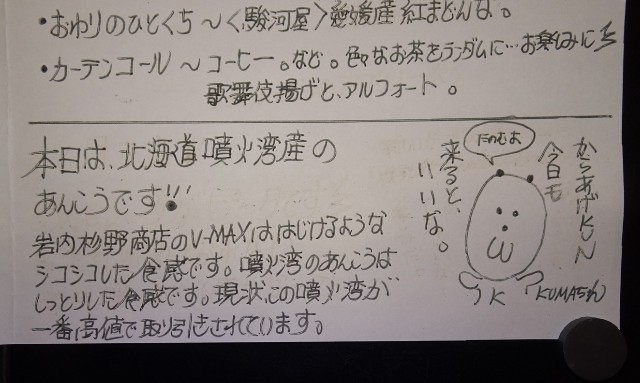 ・おわりのひとくち〜〈駿河屋〉愛媛産 紅まどんな。
・カーテンコール〜コーヒー。など。色々なお茶をランダムに…お楽しみにち
歌舞伎揚げと、アルフォート。
本日は、北海道噴火湾産の
あんこうです!!
岩内杉野商店のV-MAXは、はじけるような
シコシコした食感です。噴火湾のあんこうは
しっとりした食感です。現状、この噴火湾が
一番高値で取り引きされています。
からあげKUN
今日も
来ると、
いいな。
だのむお
K
KUMAちん